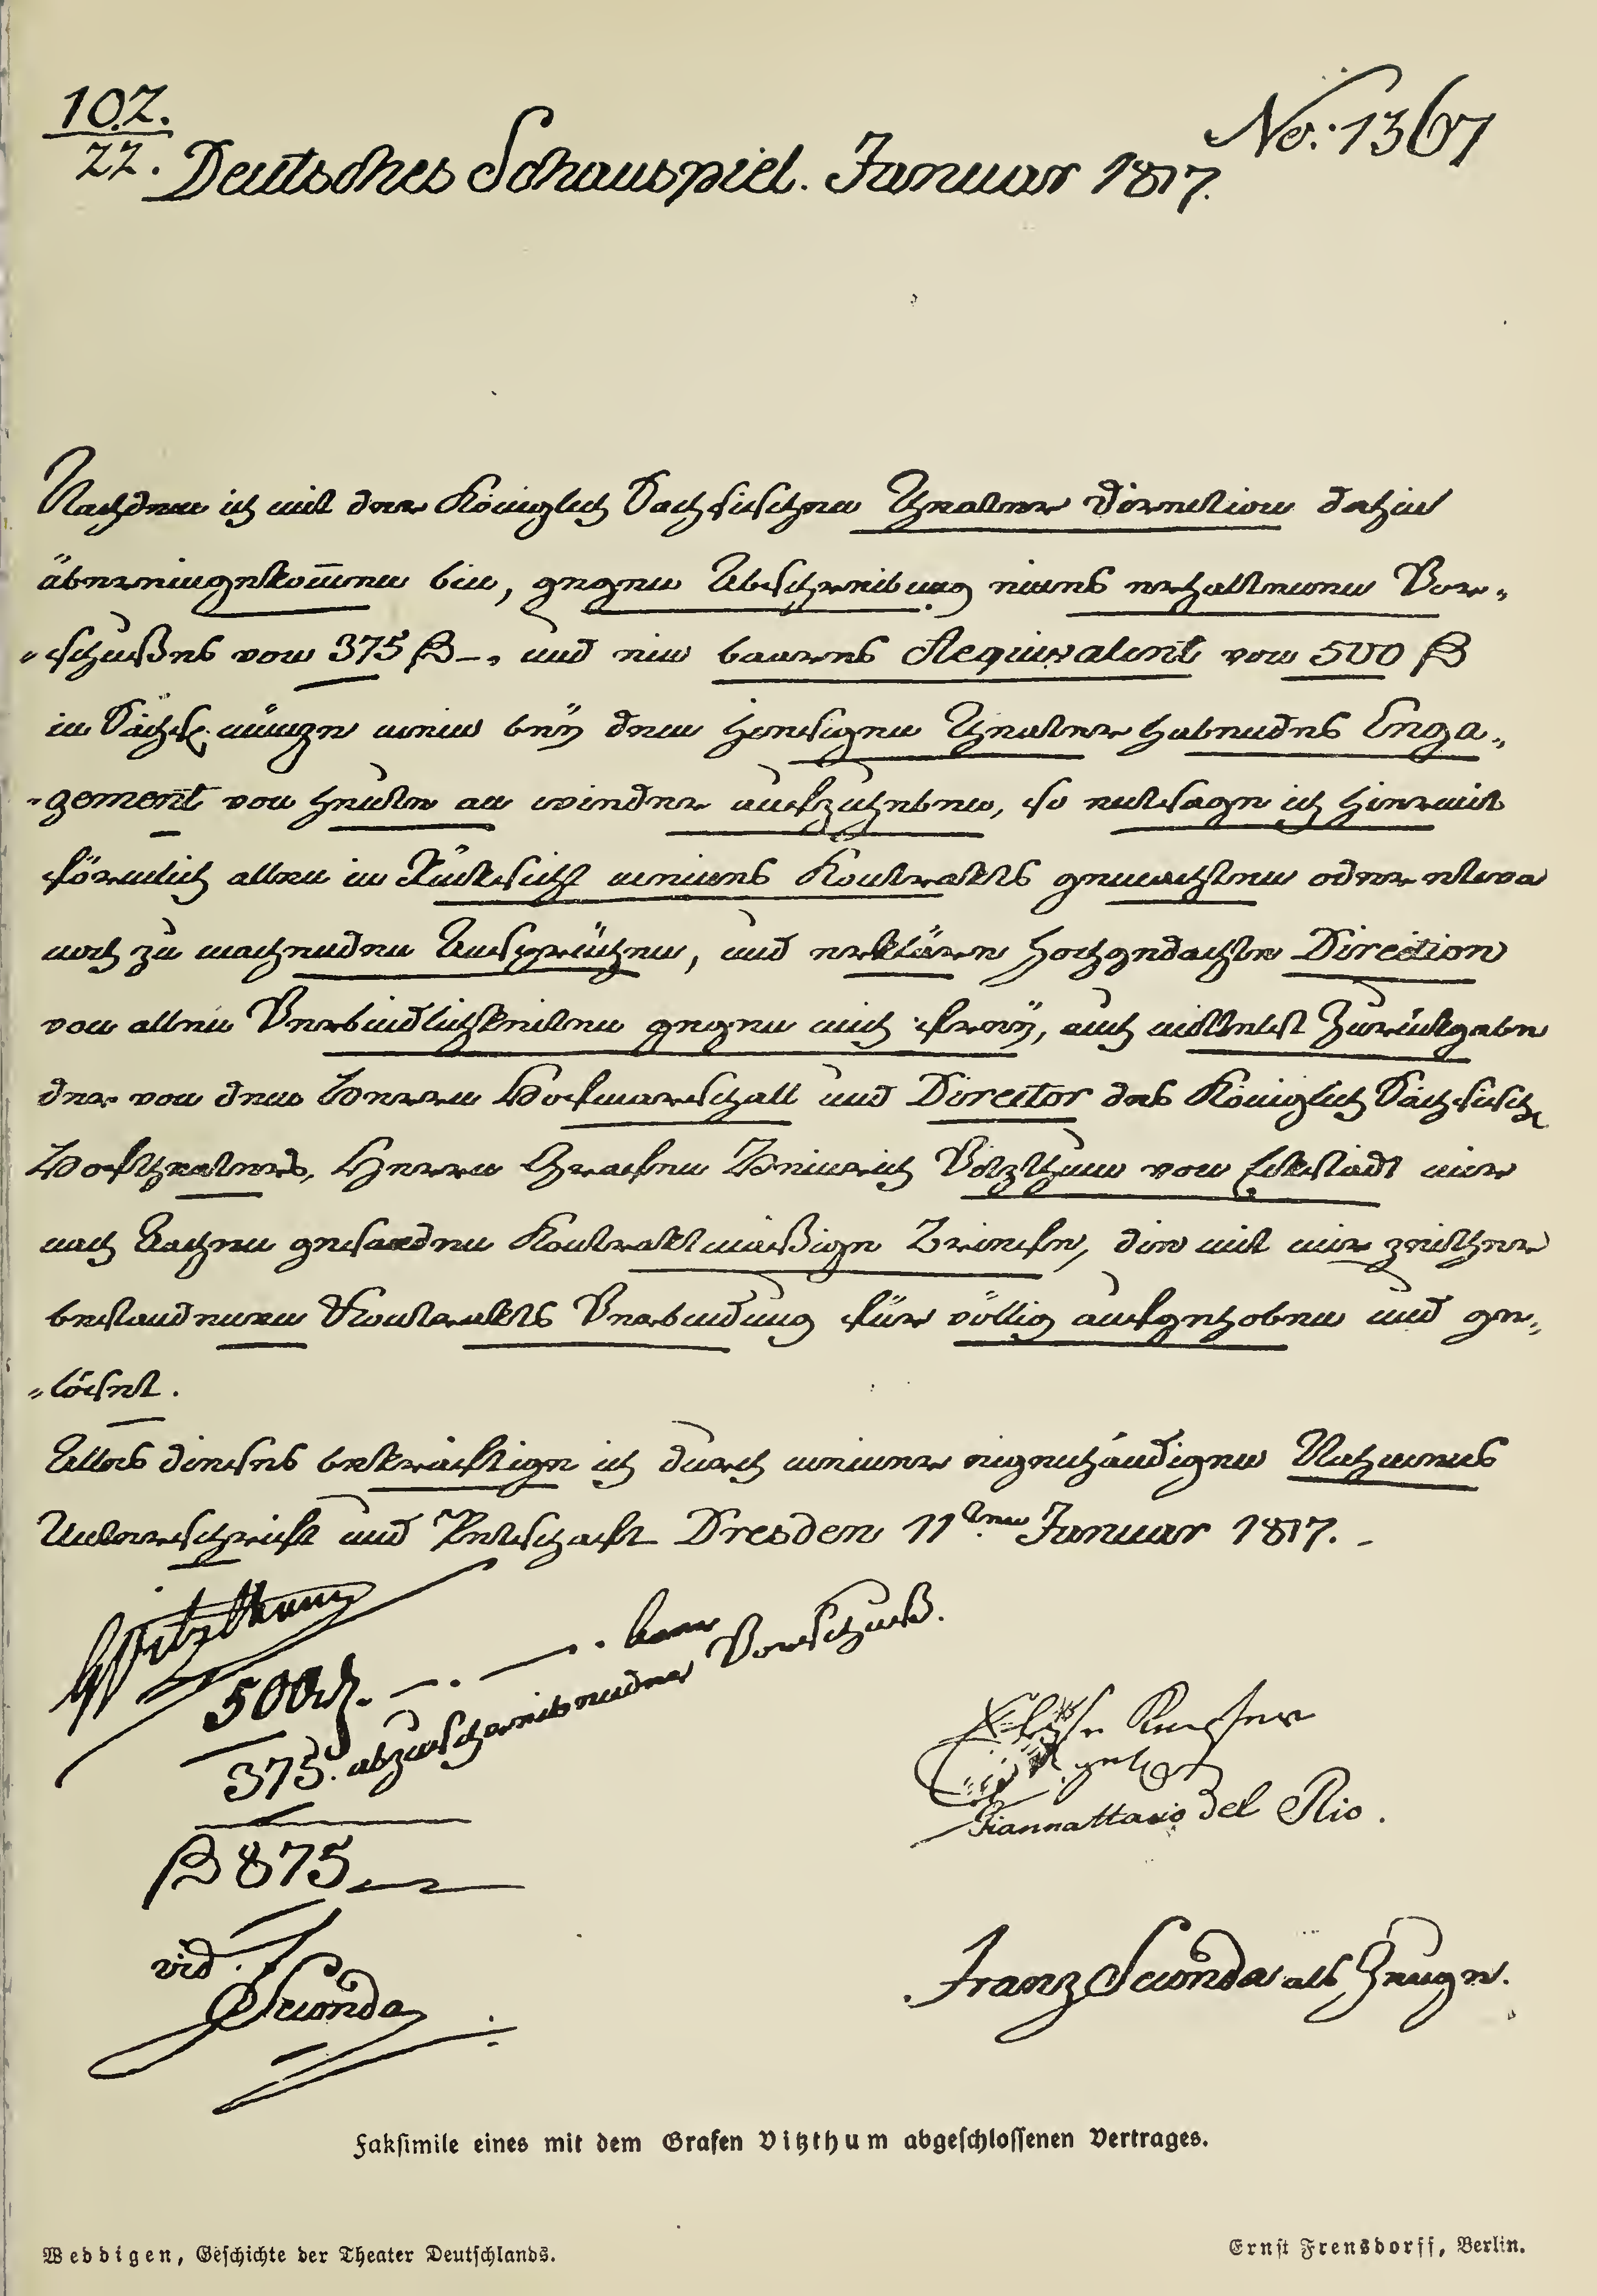 107.
22.
No: 1367
Deutsches Schauspiel. Januar 1817.
Nachdem ich mit der Königlich Sächsischen Theater Direction dahin
übereingekom̄en bin, gegen Abschreibung eines erhaltenen Vor„
„schußes von 375 ß –, und ein baares Aequivalent von 500 ß
in Sächß. münze mein beÿ dem hiesigen Theater habendes Enga„
„gement von heute an wieder aufzuheben, so entsage ich hiermit
förmlich allen in Rücksicht meines Kontrakts gemachten oder etwa
noch zu machenden Ansprüchen, und erkläre hochgedachte Direction
von allen Verbindlichkeiten gegen mich freÿ, auch mittelst Zurückgabe
der von dem Herrn Hofmarschall und Director des Königlich Sächsisch
Hoftheaters, Herrn Grafen Heinrich Vitzthum von Eckstädt mir
nach Aachen gesandten Kontraktmäßigen Briefe, die mit mir zeither
bestandenen Kontrakts Verbindung für völlig aufgehoben und ge„
„löset.
Alles dieses bekräftige ich durch meiner eigenhändigen Nahmens
Unterschrift und Petschaft Dresden 11ten Januar 1817. –
GVitzthum
500 rh. – . – . baar
375. abzuschreibender Vorschuß.
ß 875
Elise Keyser
geb.
Giannattasio del Rio.
vid.
Seconda
Franz Seconda als Zeuge.
Faksimile eines mit dem Grafen Vitzthum abgeschlossenen Vertrages.
Weddigen, Geschichte der Theater Deutschlands.
Ernst Frensdorff, Berlin.